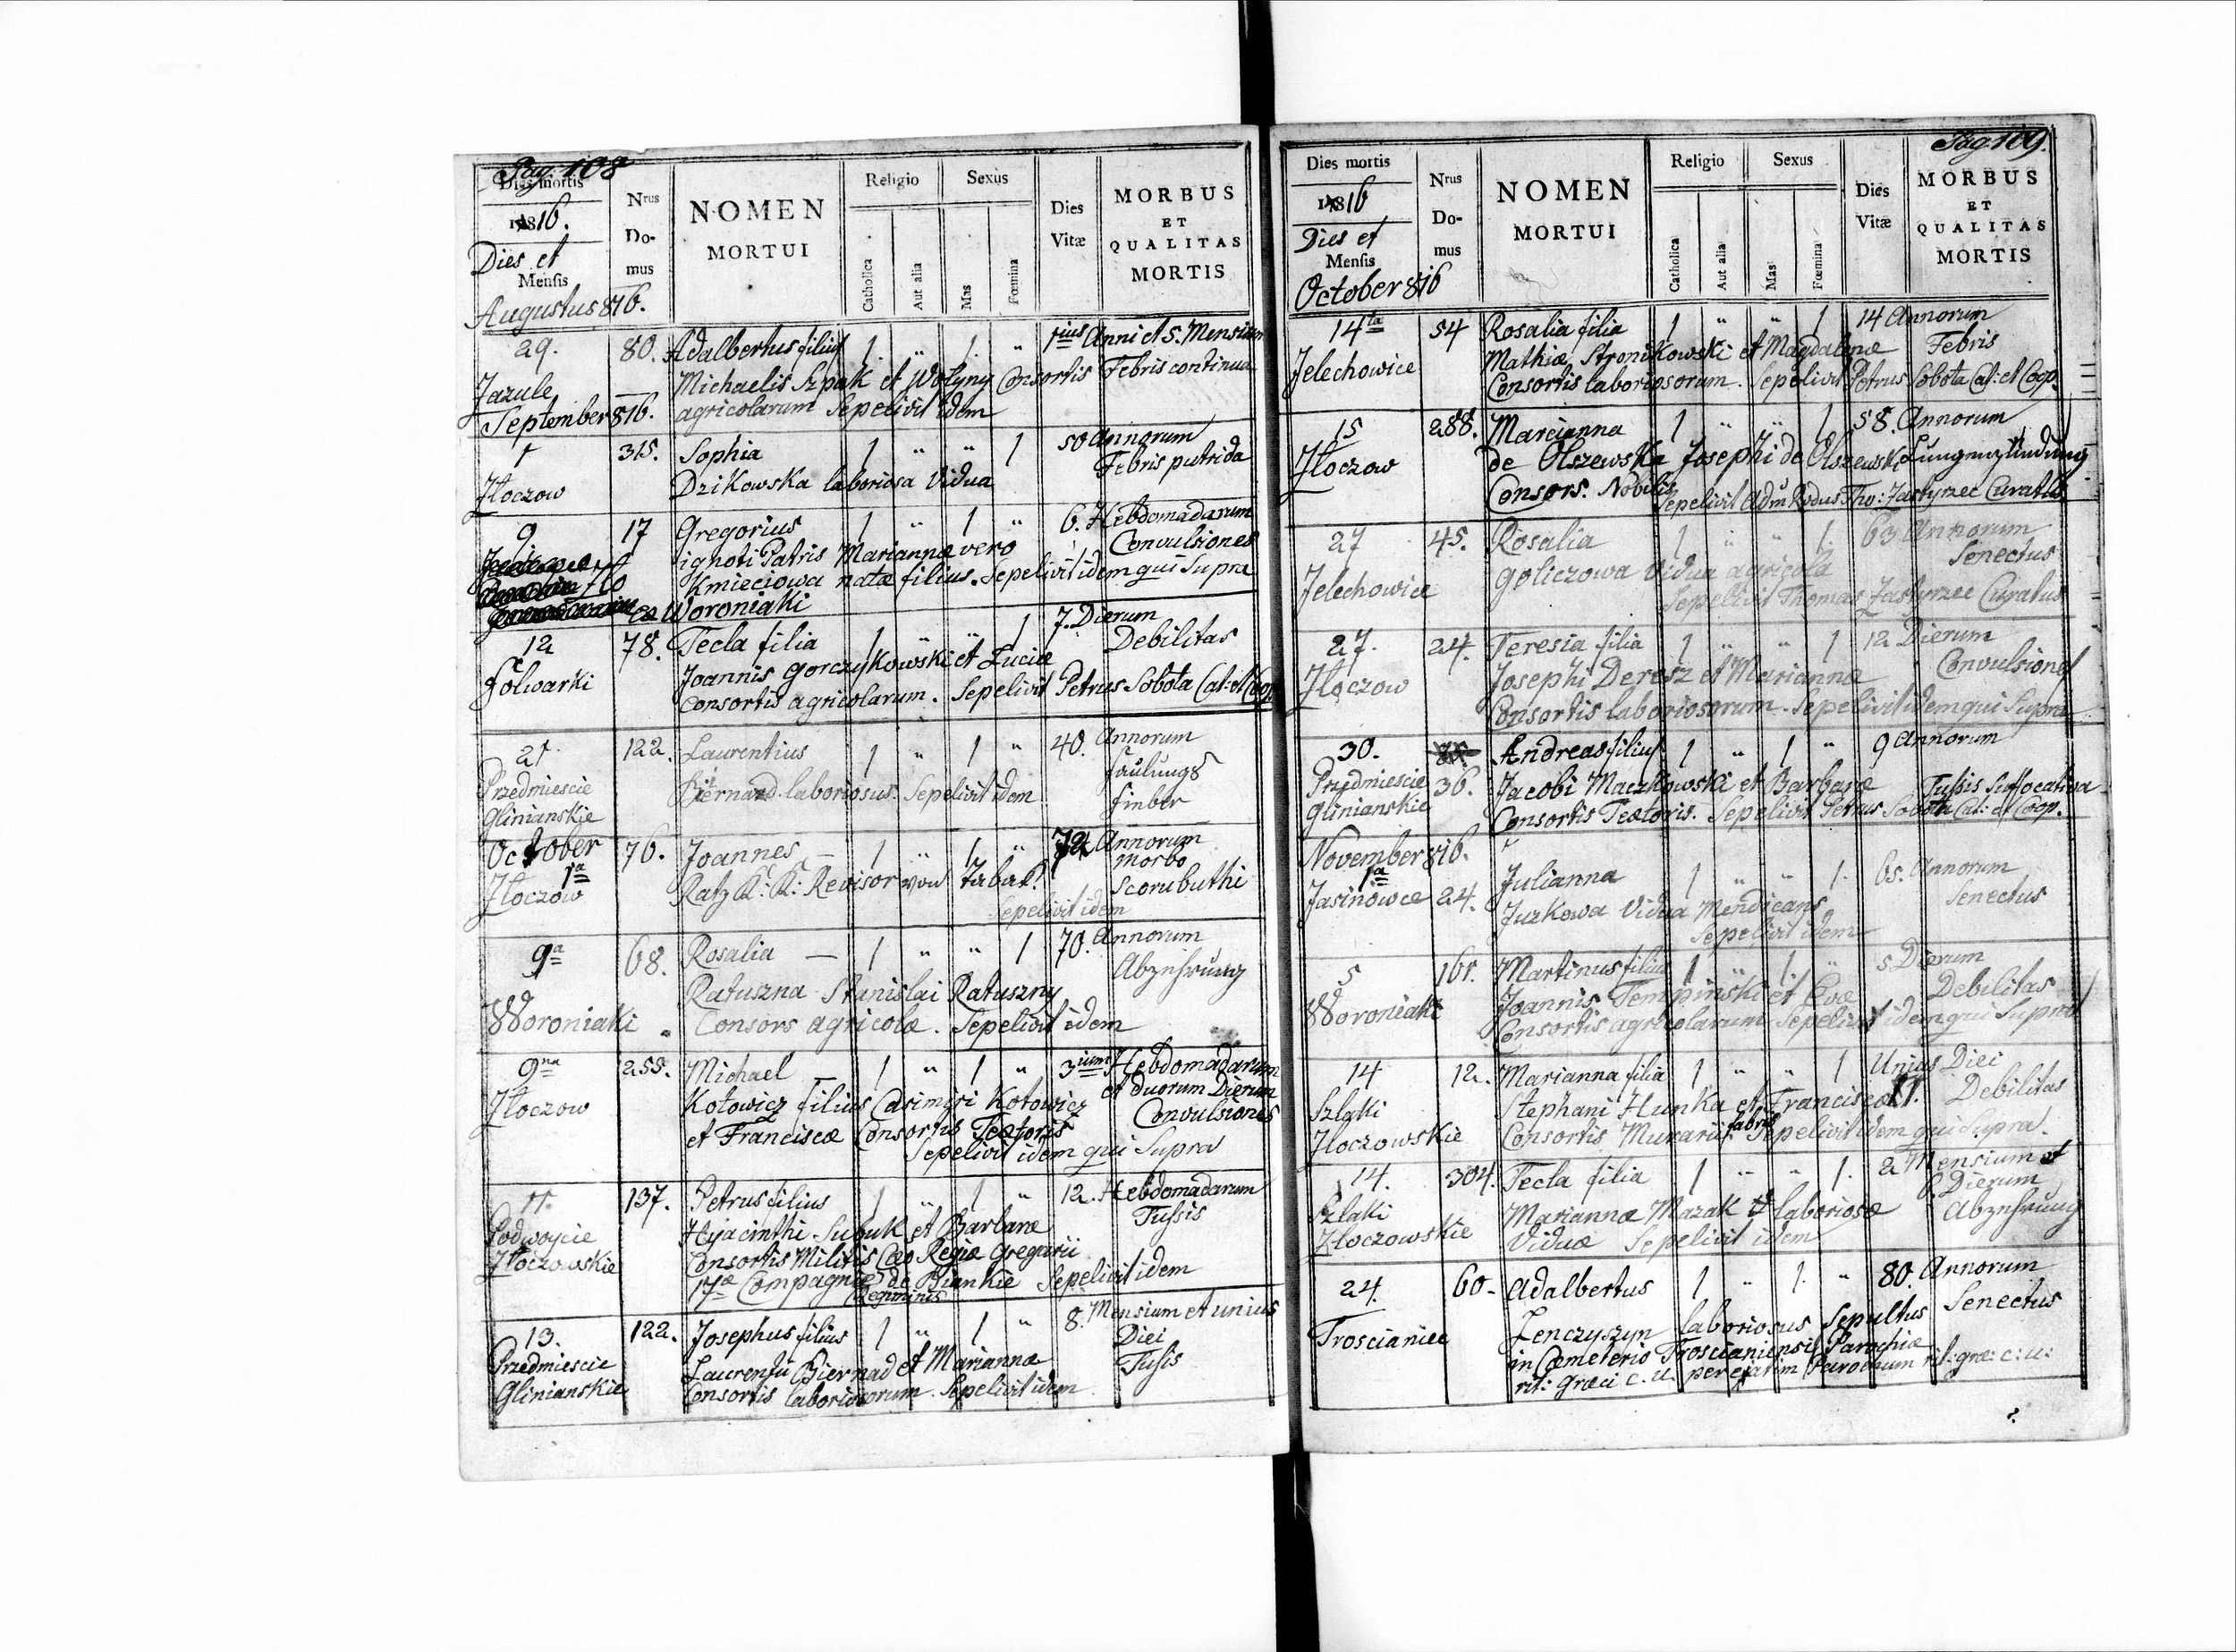 Pag. 108
Dies mortis
1816.
Dies et
Mensis
Augustus 816.
Nrus
Do-
mus
NOMEN
MORTUI
Religio
Catholica
Aut alia
Sexus
Mas
Fœmina
Dies
Vitæ
MORBUS
ET
QUALITAS
MORTIS
29. 80. Adalbertus filius 1. " 1. " 1ius Anni et 5. Mensium
Jazule Michaelis Szpak et Wołyny Consortis Febris continua
September 816. agricolarum Sepelivit idem
1 315. Sophia 1 " " 1 50 Annorum
Febris putrida
Złoczow Dzikowska laboriosa Vidua
9 17 Gregorius 1 " 1 " 6. Hebdomadarum
ignoti Patris Mariannæ vero Convulsiones
Kmieciowa natæ filius. Sepelivit idem qui Supra
Woroniaki
12 78. Tecla filia 1 " " 1 7. Dierum
Debilitas
Folwarki Joannis Gorczykowski et Luciæ
Consortis agricolarum. Sepelivit Petrus Sobota Cat: et Coop.
21 122. Laurentius 1 " 1 " 40. Annorum
Przedmiescie Biernad laboriosus. Sepelivit idem faulungs
Glinianskie fieber
October 76. Joannes — 1 " 1 " 72 Annorum
1a morbo
Złoczow Ratz K: K: Revisor von Tabak. Scorubuthi
Sepelivit idem
9a 68. Rosalia — 1 " " 1 70. Annorum
Abzehrung
Ratuszna Stanislai Ratuszny
Woroniaki Consors agricolæ. Sepelivit idem
9na 255. Michael 1 " 1 " 3ium Hebdomadarum
et duorum Dierum
Złoczow Kotowicz filius Casimiri Kotowicz Convulsiones
et Franciscæ Consortis Textoris
Sepelivit idem qui Supra
11. 137. Petrus filius 1 " 1 " 12. Hebdomadarum
Tussis
Podwoycie Hyacinthi Subuk et Barbaræ
Złoczowskie Consortis Militis Cæo Regiæ Gregarii
17æ Compagniæ de Biankie Sepelivit idem
Regiminis
13. 122. Josephus filius 1 " 1 " 8. Mensium et unius
Diei
Przedmiescie Laurentii Biernad et Mariannæ Tussis
Glinianskie Consortis laboriosorum. Sepelivit idem
Pag. 109.
Dies mortis
1816
Dies et
Mensis
October 816
Nrus
Do-
mus
NOMEN
MORTUI
Religio
Catholica
Aut alia
Sexus
Mas
Fœmina
Dies
Vitæ
MORBUS
ET
QUALITAS
MORTIS
14ta 54 Rosalia filia 1 " " 1 14 Annorum
Mathiæ Stronikowski et Magdalenæ Febris
Jelechowice Consortis laboriosorum. Sepelivit Petrus Sobota Cat: et Coop.
15 288. Marcianna 1 " " 1 58. Annorum
Złoczow de Olszewska Josephi de Olszewski Lungenzündung
Consors. Nobilis
Sepelivit Adm Rndus Tho: Zastyrzec Curatus
27 45. Rosalia 1 " " 1. 63 Annorum
Senectus
Jelechowice Goliczowa Vidua agricola
Sepelivit Thomas Zastyrzec Curatus
27. 24. Teresia filia 1 " " 1 12 Dierum
Convulsiones
Złoczow Josephi Deresz et Mariannæ
Consortis laboriosorum. Sepelivit idem qui Supra
30. Andreas filius 1 " 1 " 9 Annorum
Przedmiescie 36. Jacobi Maczkowski et Barbaræ Tussis Suffocativa
Glinianskie Consortis Textoris. Sepelivit Petrus Sobota Cat: et Coop.
November 816.
1a Julianna 1 " " 1. 65. Annorum
Jasinowce 24. Jurkowa Vidua Mendicans Senectus
Sepelivit idem
5 161. Martinus filius 1 " 1. " 5 Dierum
Woroniaki Joannis Tempinski et Evæ Debilitas
Consortis agricolarum Sepelivit idem qui Supra
14 12. Marianna filia 1 " " 1 Unius Diei
Szlaki Stephani Hunka et Franciscæ Debilitas
Złoczowskie Consortis Murarii fabri Sepelivit idem qui Supra.
14. 304. Tecla filia 1 " " 1. 2 Mensium et
6 Dierum
Szlaki Mariannæ Mazak laboriosæ Abzehrung
Złoczowskie Viduæ Sepelivit idem
24. 60. Adalbertus 1 " 1. " 80. Annorum
Senectus
Troscianiec Zenczyszyn laboriosus Sepultus
in Cæmeterio Troscianiensis Parochiæ
rit: Græci c. u. per ejatim Parochum rit: græ: c: u: